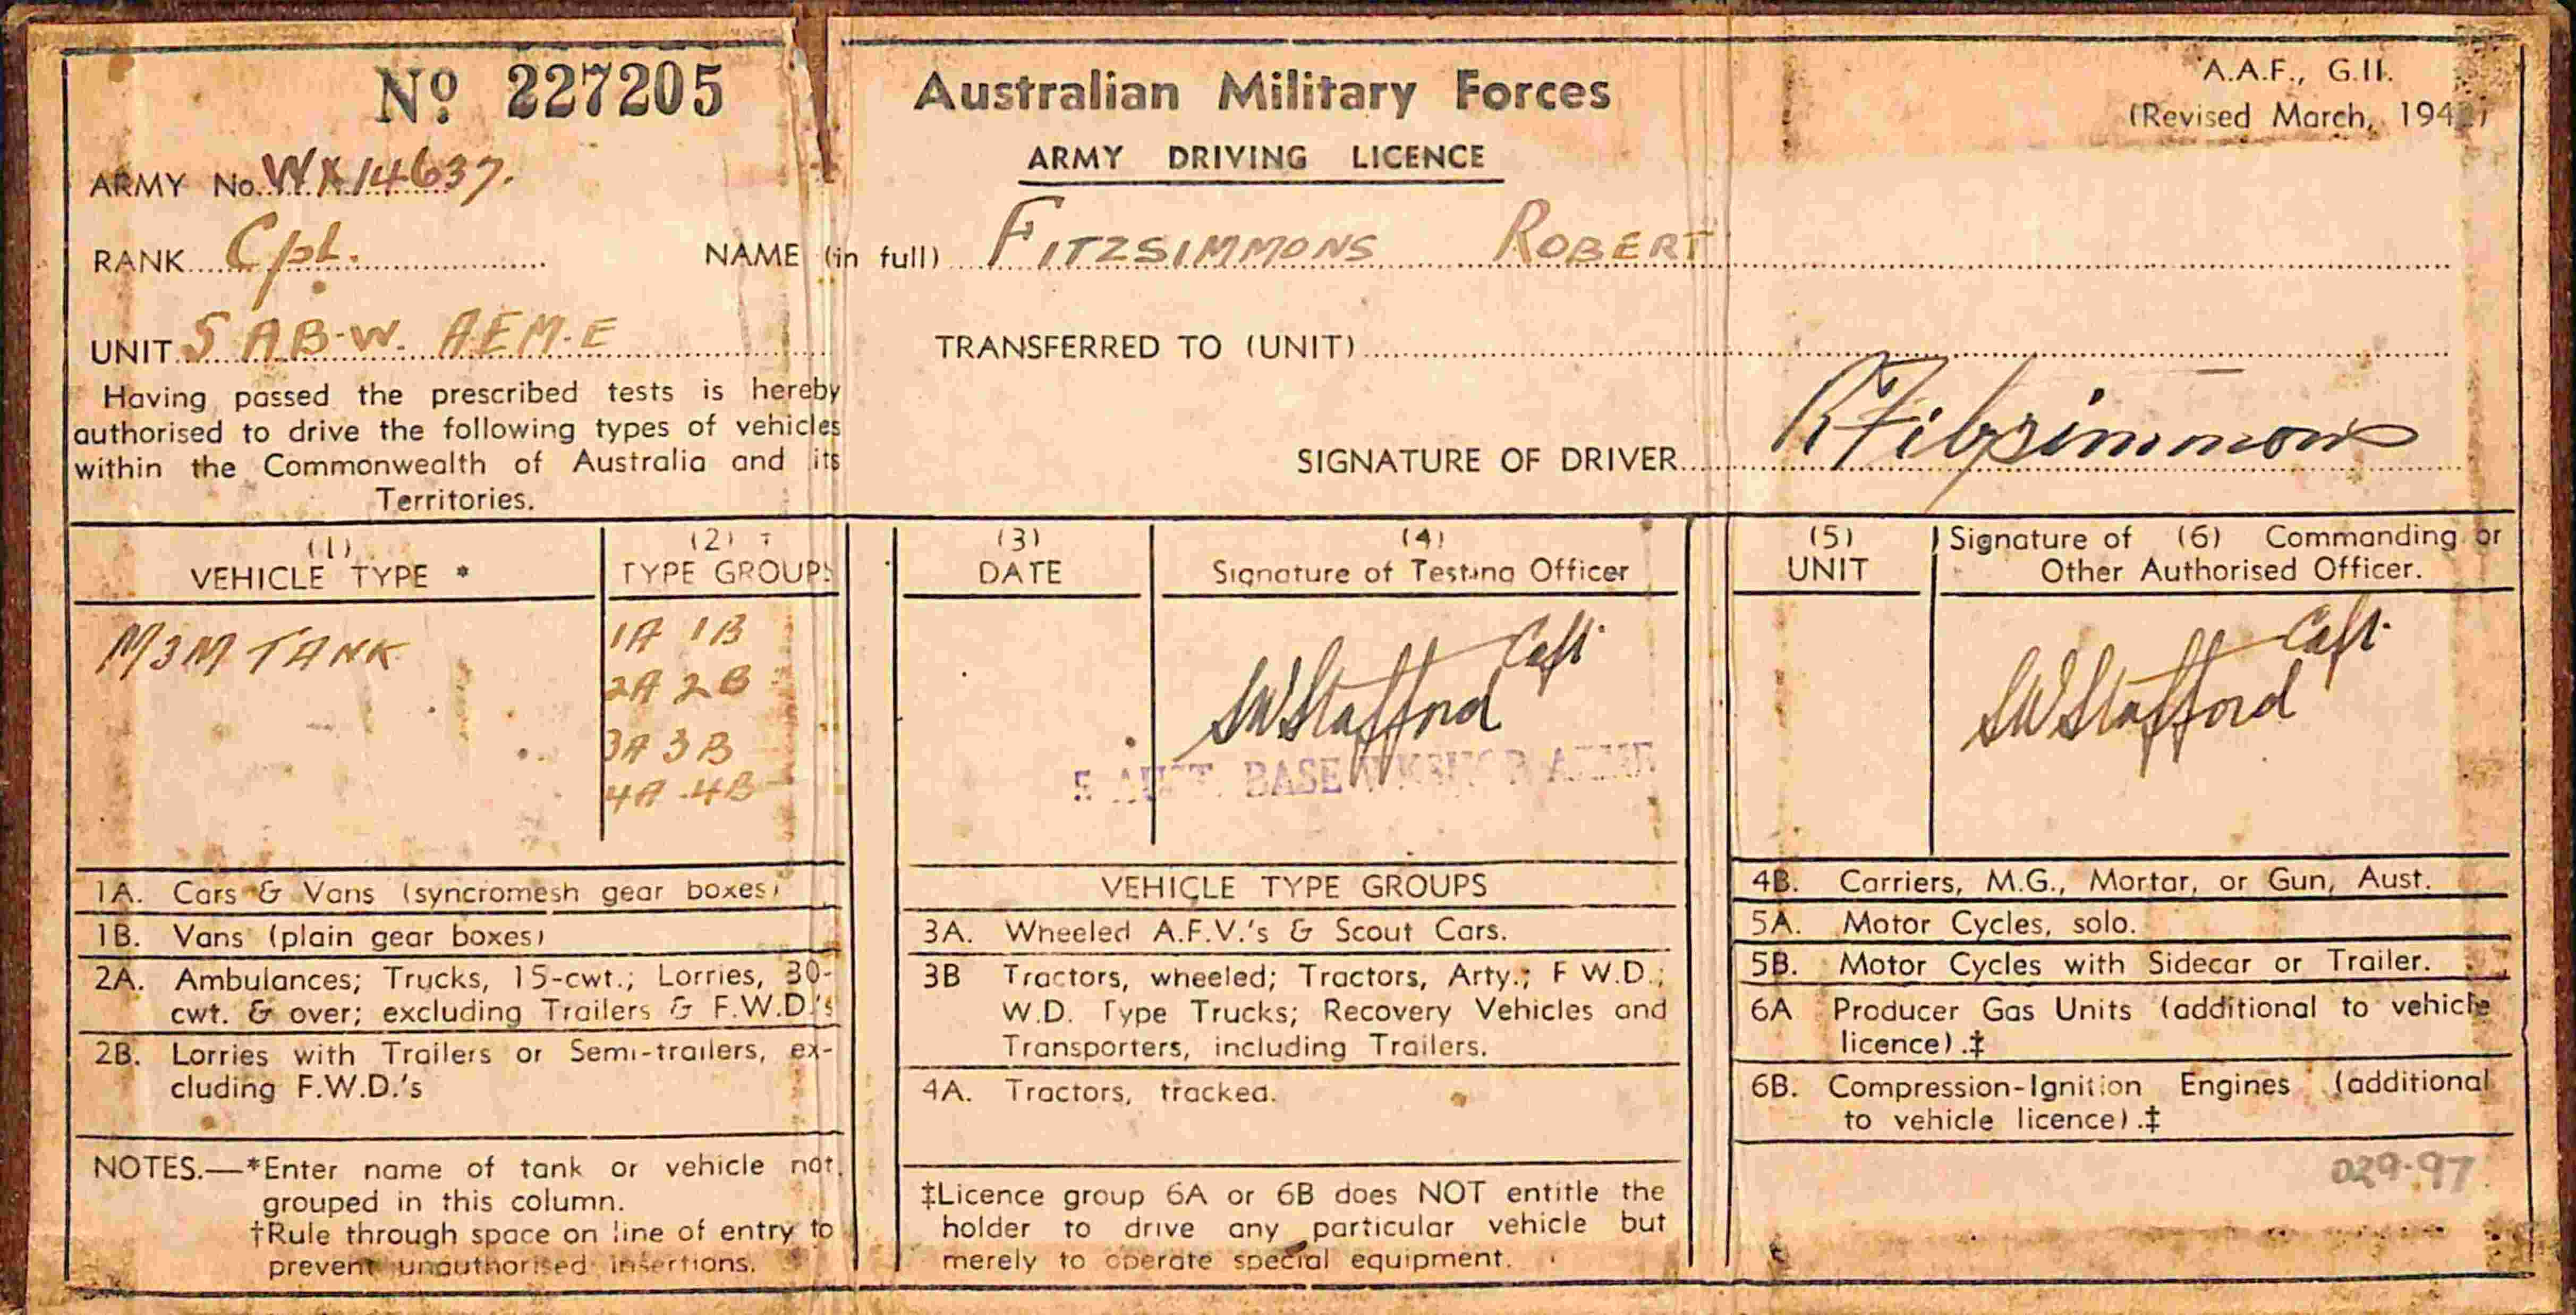 Nº 227205
Australian Military Forces
A.A.F., G.II.
(Revised March, 194
ARMY DRIVING LICENCE
ARMY No. WX14637.
RANK Cpl. NAME (in full) FITZSIMMONS ROBERT
UNIT 5 AB-W. AEM.E TRANSFERRED TO (UNIT)
Having passed the prescribed tests is hereby
authorised to drive the following types of vehicles
within the Commonwealth of Australia and its
Territories.
SIGNATURE OF DRIVER R Fitzsimmons
(1)
VEHICLE TYPE *
(2) †
TYPE GROUPS
M3M TANK
1A 1B
2A 2B
3A 3B
4A 4B
1A. Cars & Vans (syncromesh gear boxes)
1B. Vans (plain gear boxes)
2A. Ambulances; Trucks, 15-cwt.; Lorries, 30-
cwt. & over; excluding Trailers & F.W.D.'s
2B. Lorries with Trailers or Semi-trailers, ex-
cluding F.W.D.'s
NOTES.—*Enter name of tank or vehicle not
grouped in this column.
†Rule through space on line of entry to
prevent unauthorised insertions.
(3)
DATE
(4)
Signature of Testing Officer
SWStafford Capt.
5 AUST. BASE WKSHOP AEME
VEHICLE TYPE GROUPS
3A. Wheeled A.F.V.'s & Scout Cars.
3B Tractors, wheeled; Tractors, Arty.; F W.D.;
W.D. Type Trucks; Recovery Vehicles and
Transporters, including Trailers.
4A. Tractors, tracked.
‡Licence group 6A or 6B does NOT entitle the
holder to drive any particular vehicle but
merely to operate special equipment.
(5)
UNIT
Signature of (6) Commanding or
Other Authorised Officer.
SWStafford Capt.
4B. Carriers, M.G., Mortar, or Gun, Aust.
5A. Motor Cycles, solo.
5B. Motor Cycles with Sidecar or Trailer.
6A Producer Gas Units (additional to vehicle
licence).‡
6B. Compression-Ignition Engines (additional
to vehicle licence).‡
029.97